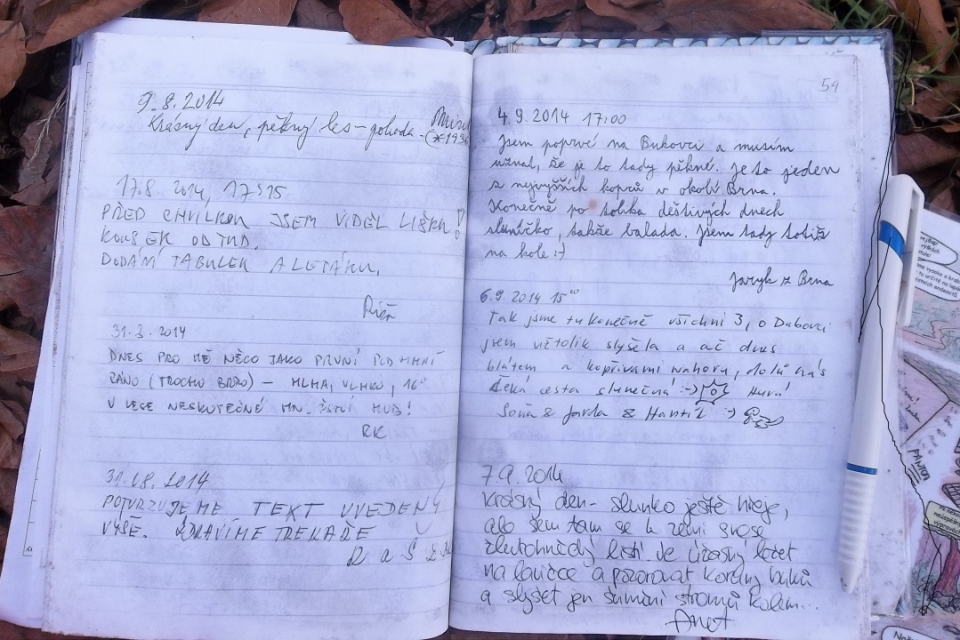 9.8.2014
Krásný den, pěkný les - pohoda -
17.8. 2014, 17:15
PŘED CHVILKOU JSEM VIDĚL LIŠKU!
KOUSEK ODTUD.
DODÁM TABULEK A LETÁKU.
31.8.2014
DNES PRO MĚ NĚCO JAKO PRVNÍ PODZIMNÍ
RÁNO (TROCHU BRZO) - MLHA, VLHKO, 16°
V LESE NESKUTEČNÉ MNOŽSTVÍ HUB!
RK
31.08.2014
POTVRZUJEME TEXT UVEDENÝ
VÝŠE. ZDRAVÍME TREKAŘE
D a Š
59
4.9.2014 17:00
Jsem poprvé na Bukovci a musím
uznat, že je to tady pěkné. Je to jeden
z nejvyšších kopců v okolí Brna.
Konečně po tolika deštivých dnech
sluníčko, takže balada. Jsem tady totiž
na kole :-)
Jaryk z Brna
6.9.2014 15⁰⁰
Tak jsme tu konečně všichni 3, o
jsem už tolik slyšela a ač dnes
blátem a kopřivami nahoru, dolů nás
čeká cesta slunečná :-) Hurá!
Soňa & Jarda &
7.9.2014
Krásný den - slunko ještě hřeje,
ale sem tam se k zemi snese
žlutohnědý listí. Je úžasný ležet
na lavičce a pozorovat koruny buků
a slyšet jen šumění stromů kolem...
Anet